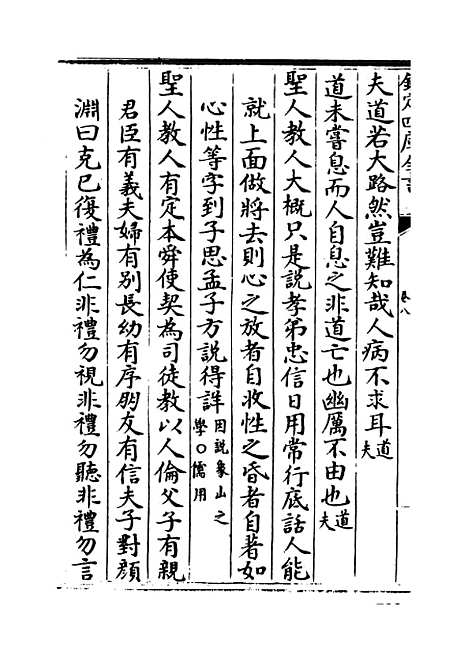 欽定四庫全書
卷八
夫道若大路然豈難知哉人病不求耳道夫
道未嘗息而人自息之非道亡也幽厲不由也道夫
聖人教人大槪只是説孝弟忠信日用常行底話人能
就上面做將去則心之放者自收性之昏者自著如
心性等字到子思孟子方説得詳因説象山之學○儒用
聖人教人有定本舜使契為司徒教以人倫父子有親
君臣有義夫婦有別長幼有序朋友有信夫子對顔
淵曰克已復禮為仁非禮勿視非禮勿聽非禮勿言